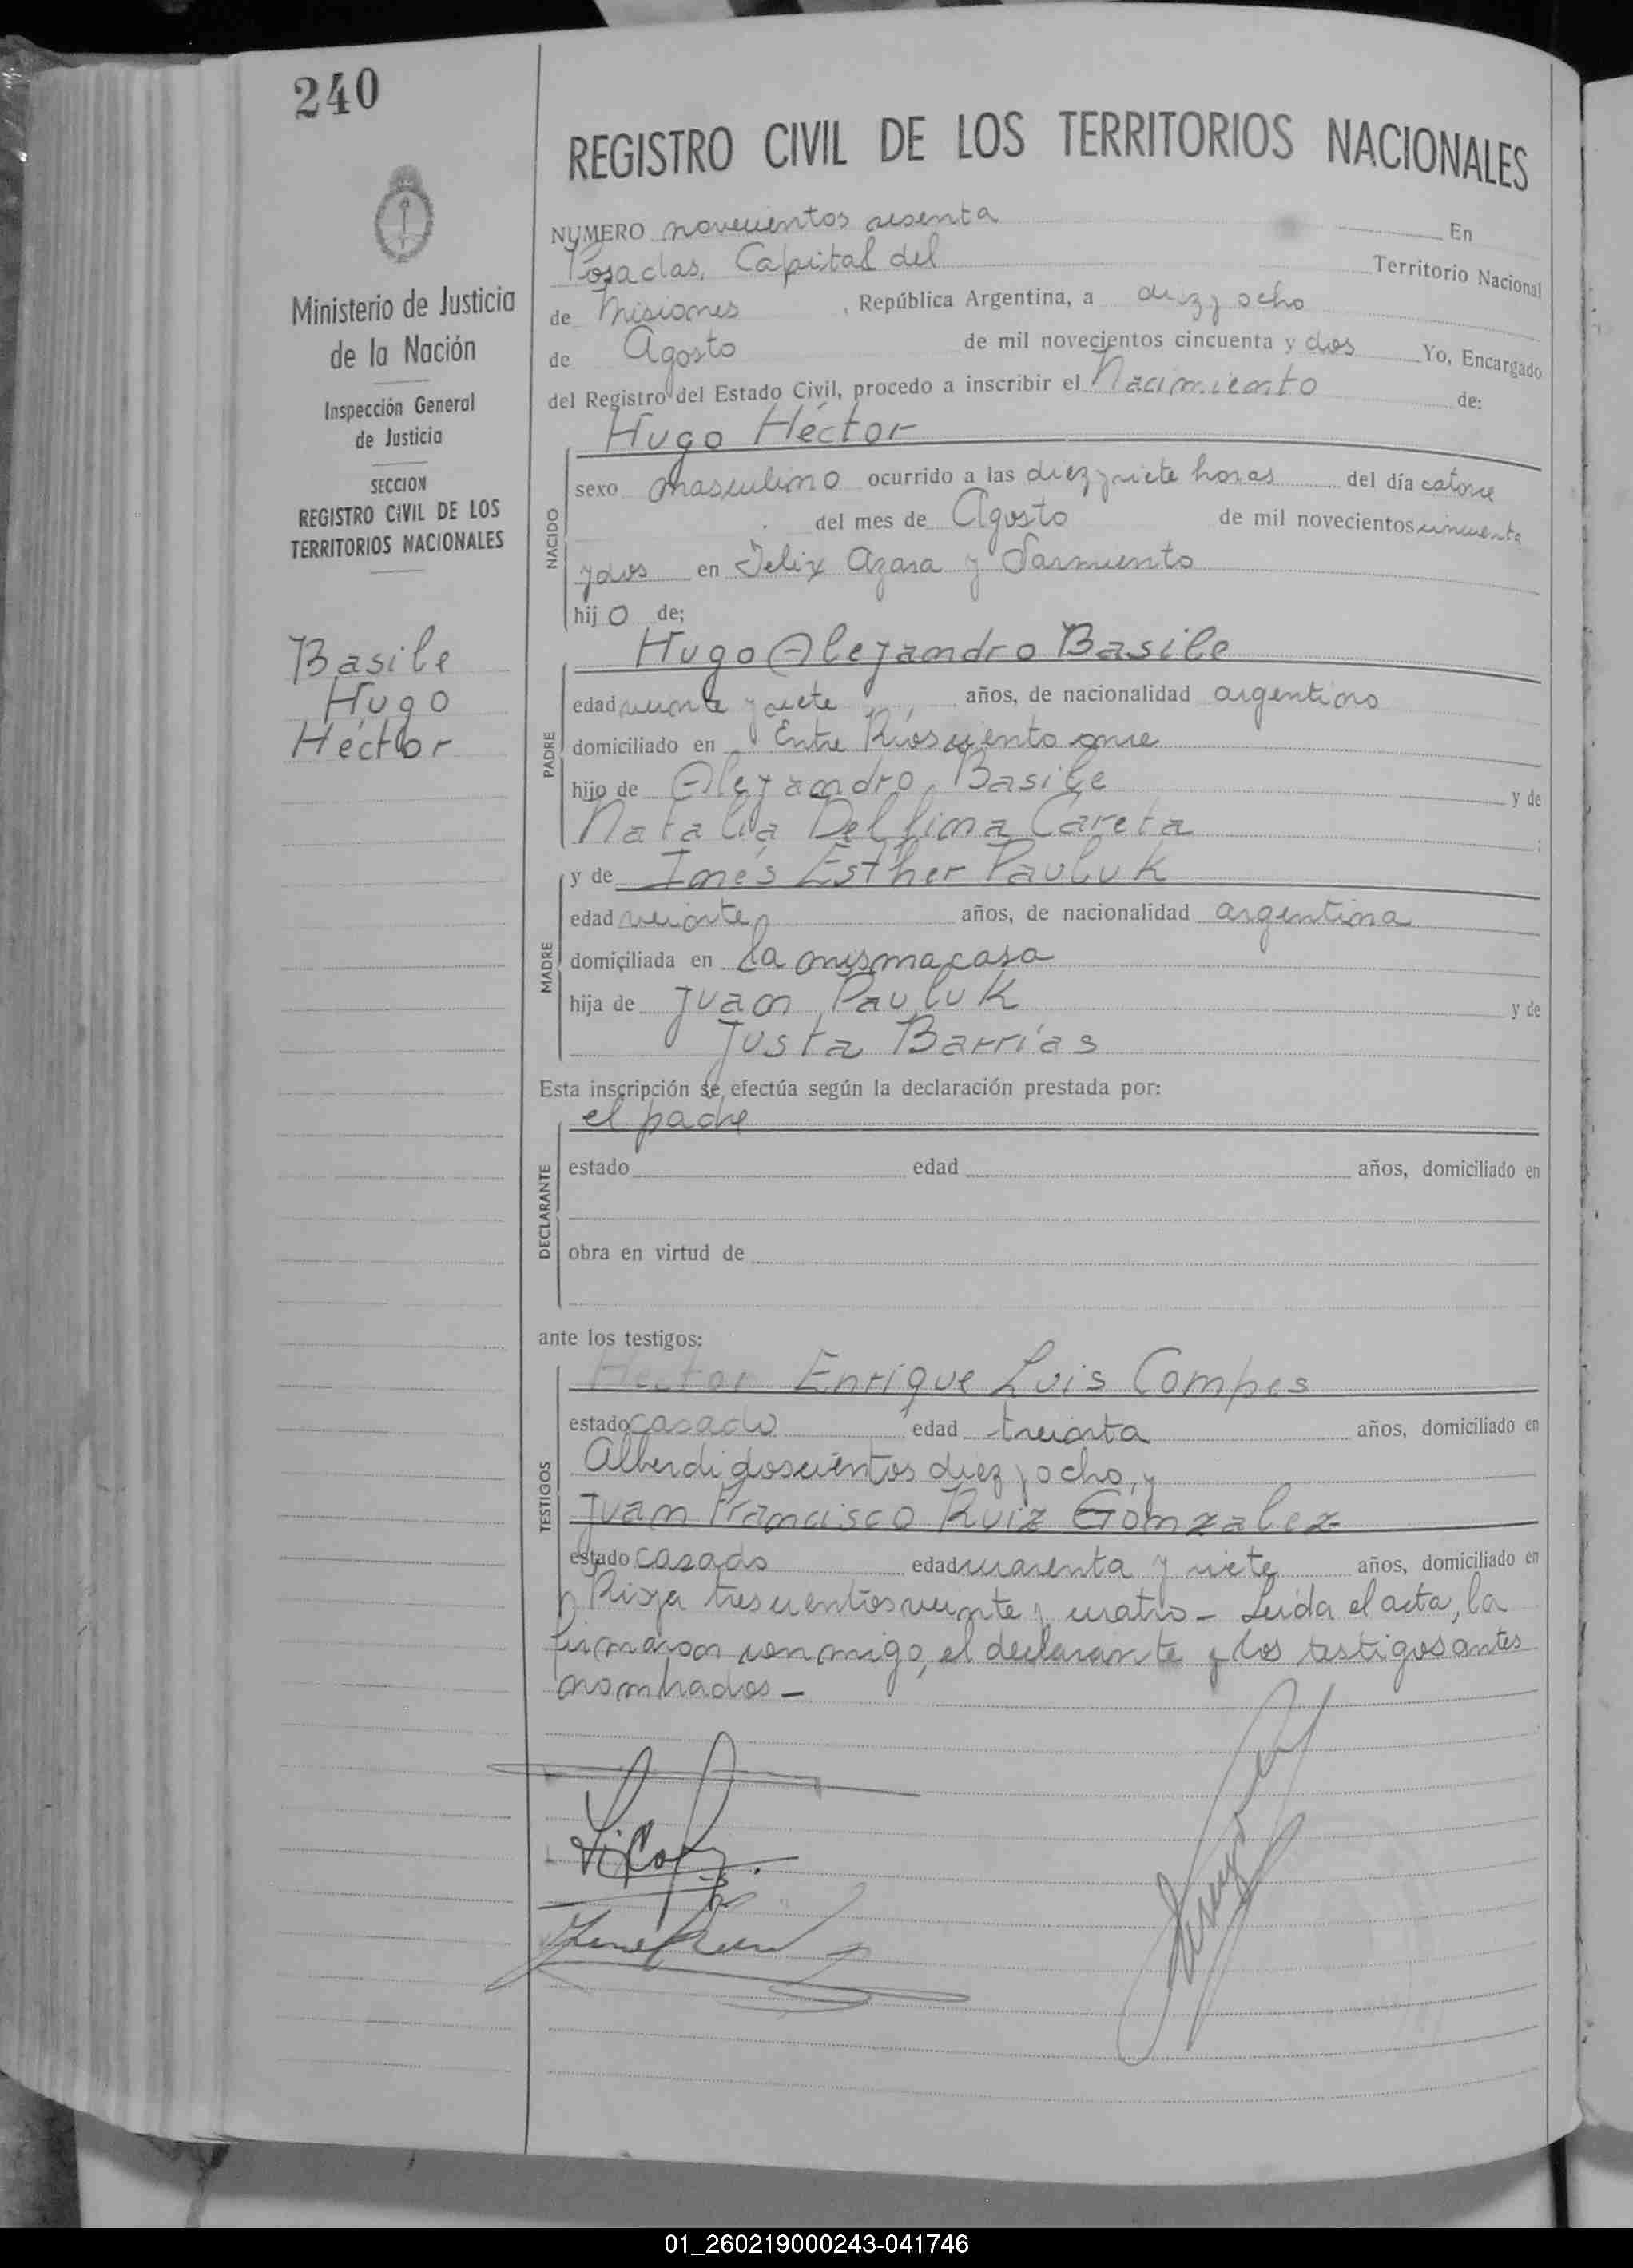 240
REGISTRO CIVIL DE LOS TERRITORIOS NACIONALES
NUMERO novecientos sesenta En
Posadas, Capital del Territorio Nacional
de Misiones, República Argentina, a diez y ocho
de Agosto de mil novecientos cincuenta y dos Yo, Encargado
del Registro del Estado Civil, procedo a inscribir el Nacimiento de:
Ministerio de Justicia
de la Nación
Inspección General
de Justicia
SECCION
REGISTRO CIVIL DE LOS
TERRITORIOS NACIONALES
Basile
Hugo
Héctor
NACIDO
Hugo Héctor
sexo masculino ocurrido a las diez y siete horas del día catorce
del mes de Agosto de mil novecientos cincuenta
y dos en Felix Azara y Sarmiento
hijo de;
PADRE
Hugo Alejandro Basile
edad veinte y siete años, de nacionalidad argentino
domiciliado en Entre Ríos ciento once
hijo de Alejandro Basile y de
Natalia Delfina Careta;
MADRE
y de Inés Esther Pauluk
edad veinte años, de nacionalidad argentina
domiciliada en la misma casa
hija de Juan Pauluk y de
Justa Barrias
Esta inscripción se efectúa según la declaración prestada por:
DECLARANTE
el padre
estado edad años, domiciliado en
obra en virtud de
ante los testigos:
TESTIGOS
Hector Enrique Luis Compes
estado casado edad treinta años, domiciliado en
Alberdi doscientos diez y ocho, y
Juan Francisco Ruiz Gomzalez
estado casado edad cuarenta y siete años, domiciliado en
Rioja trescientos veinte y cuatro - Leída el acta, la
firmaron conmigo, el declarante y los testigos antes
nombrados -
01_260219000243-041746